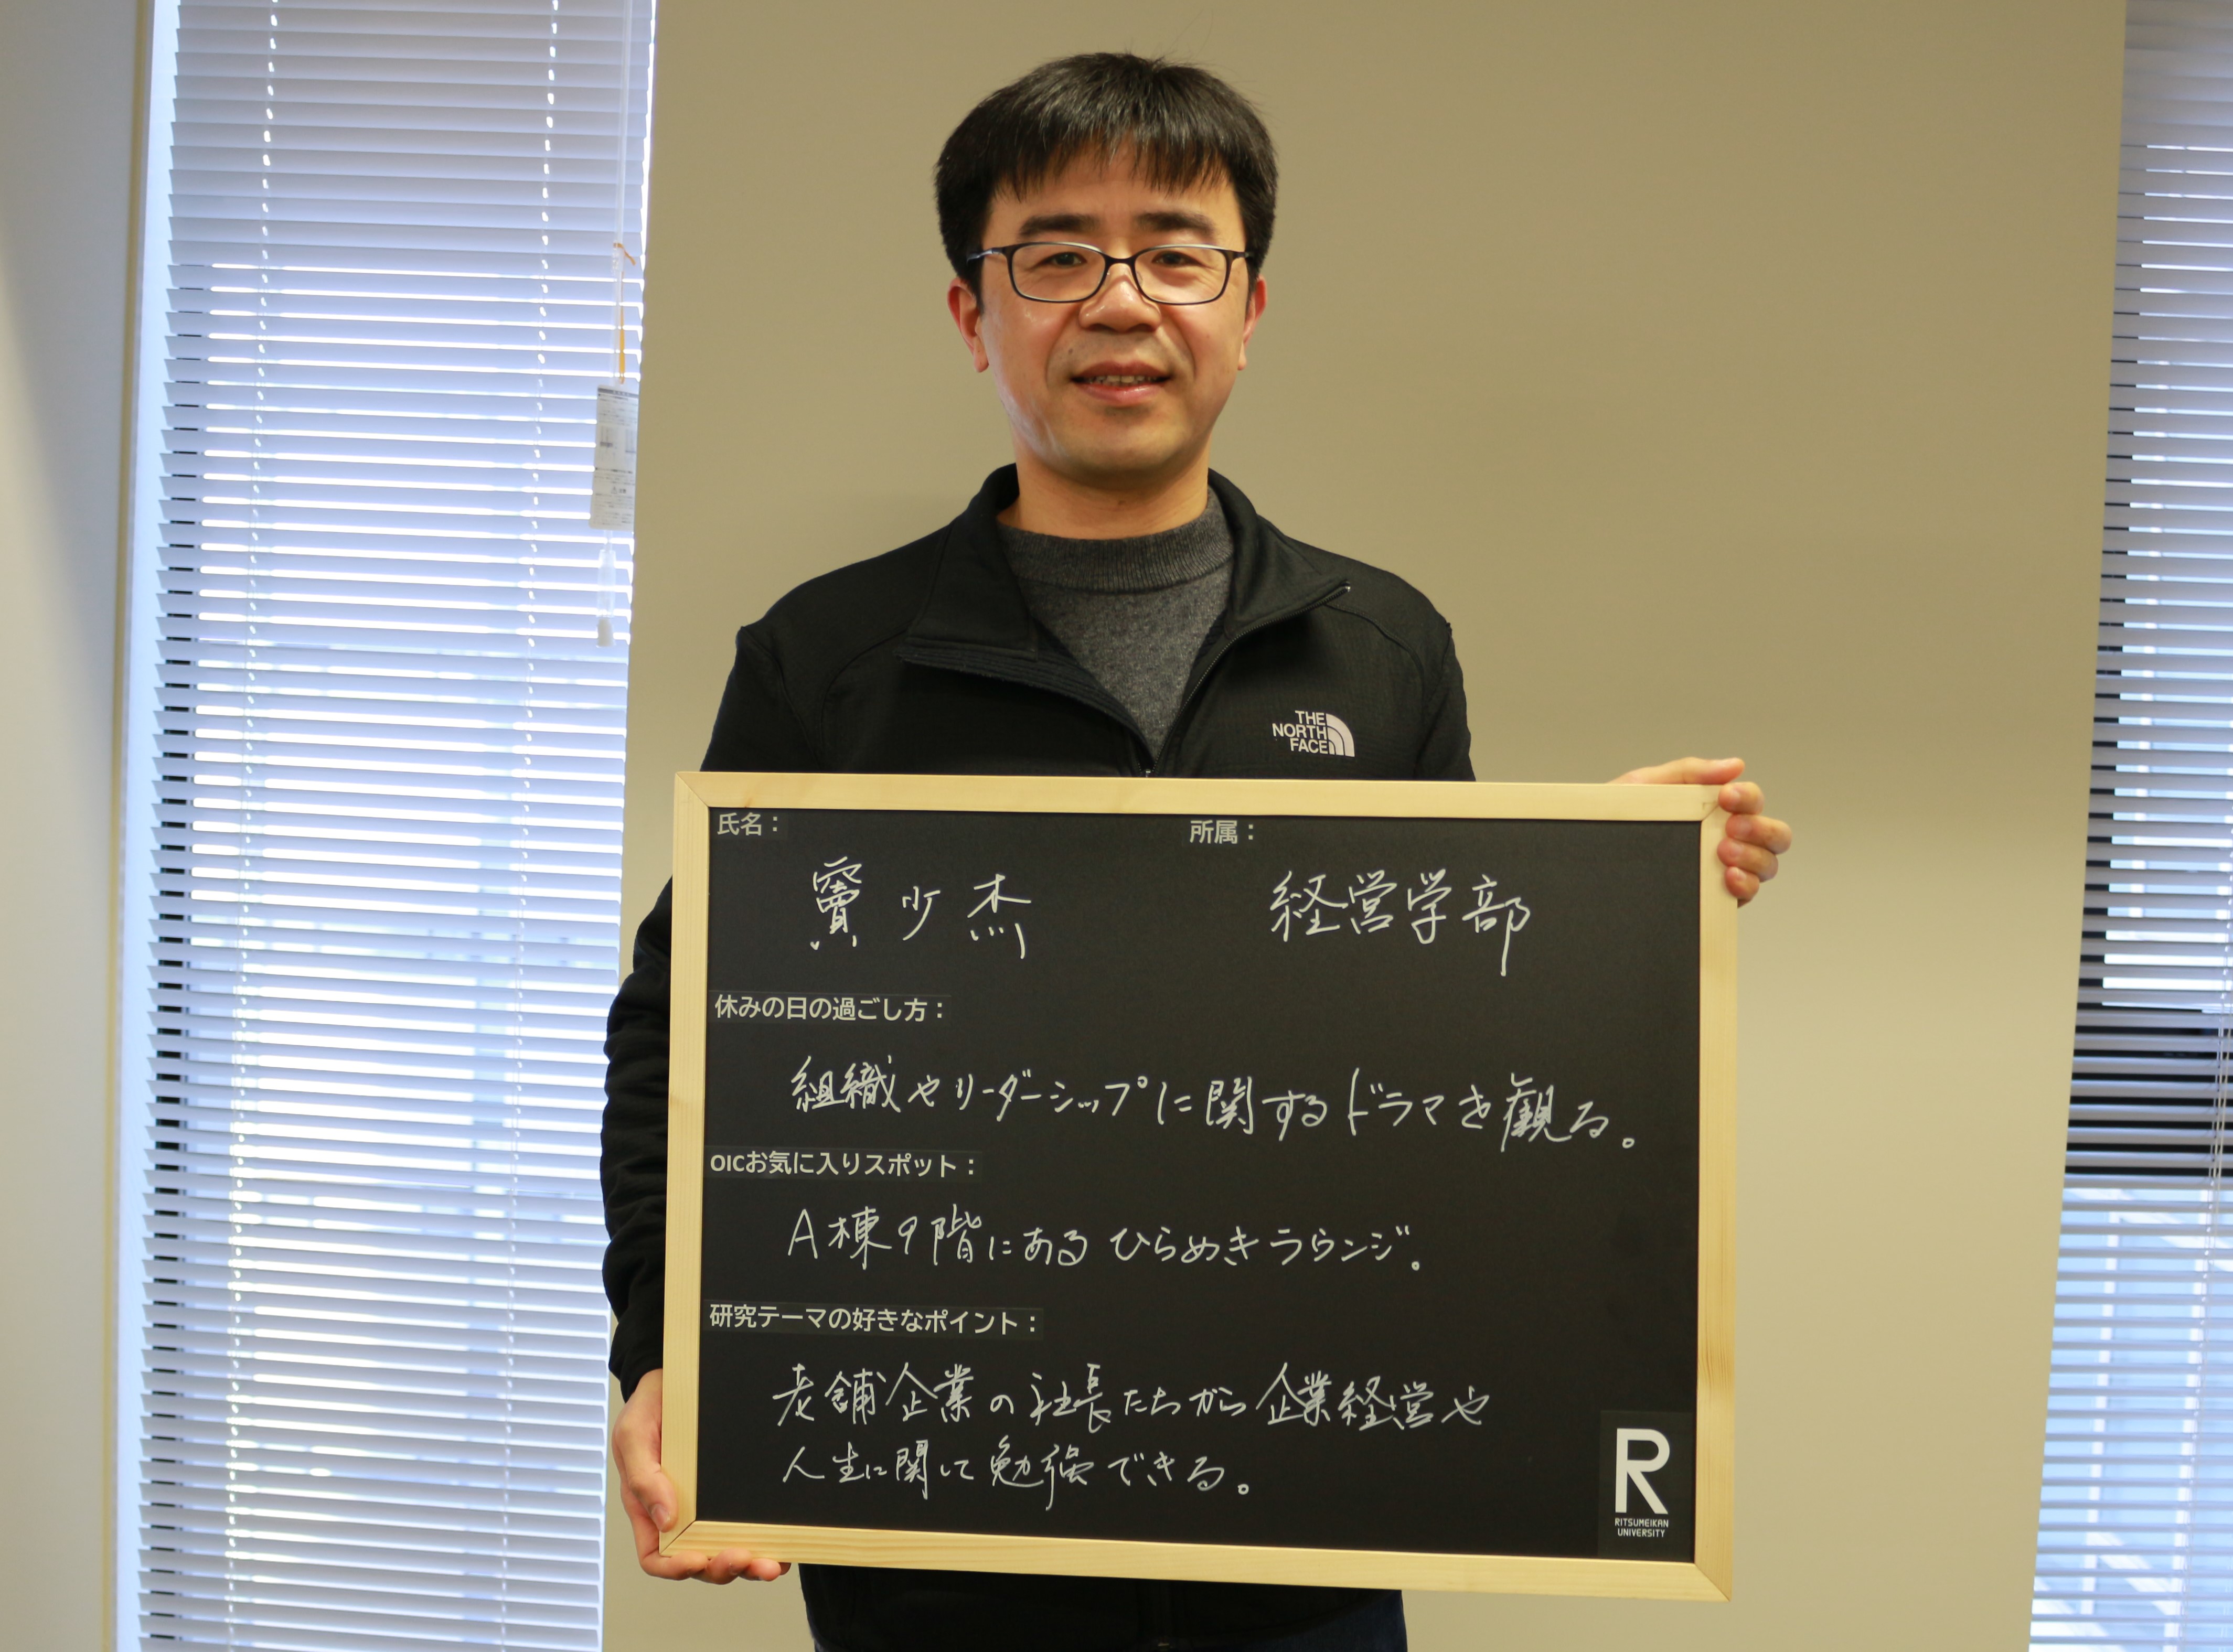 THE
NORTH
FACE
氏名：
所属：
竇少杰
経営学部
休みの日の過ごし方：
組織やリーダーシップに関するドラマを観る。
OICお気に入りスポット：
A棟9階にあるひらめきラウンジ。
研究テーマの好きなポイント：
老舗企業の社長たちから企業経営や
人生に関して勉強できる。
R
RITSUMEIKAN
UNIVERSITY